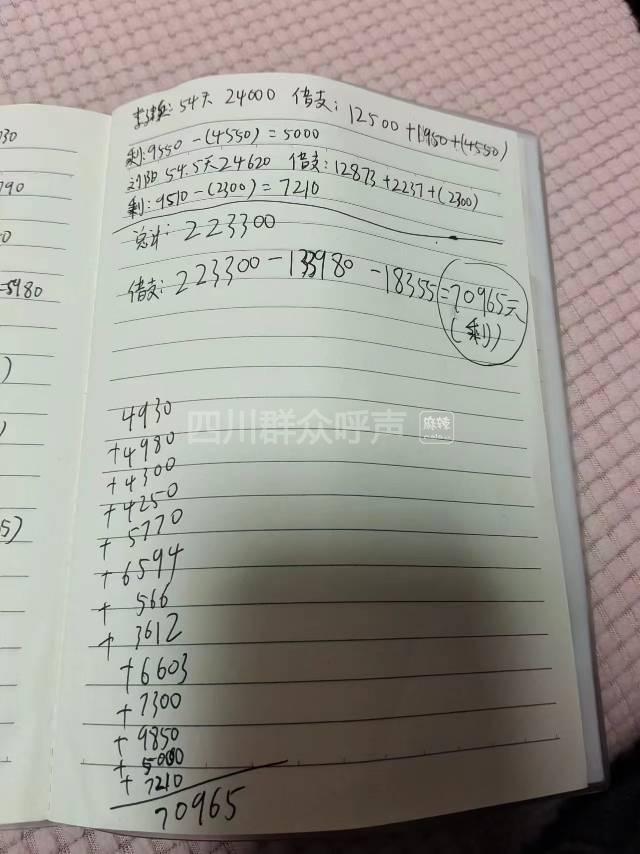 54天 24000 借支: 12500+1950+(4550)
剩:9550-(4550)=5000
刘阳 54.5天 24620 借支: 12873+2237+(2300)
剩:9510-(2300)=7210
总计: 223300
借支: 223300-133980-18355=70965元
(剩)
4930
+4980
+4300
+4250
+5770
+6594
+566
+3612
+6603
+7300
+9850
+5000
+7210
70965
930
790
0
=5980
)
)
5)
四川群众呼声
麻辣